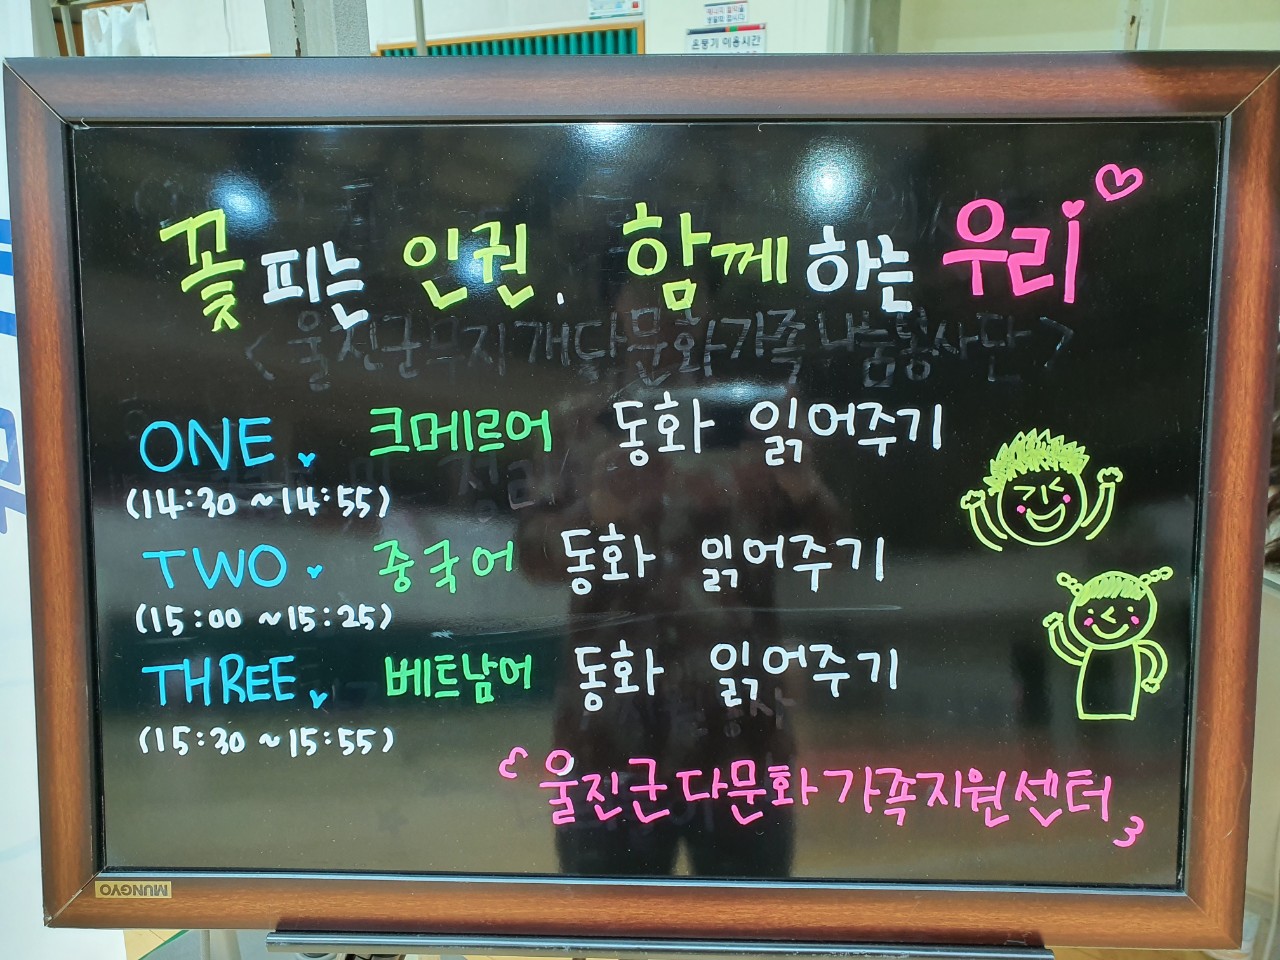 에너지 절약을
생활화 합시다
온풍기 이용시간
꽃피는 인권, 함께하는 우리
<울진군무지개다문화가족나눔봉사단>
ONE. 크메르어 동화 읽어주기
(14:30 ~14:55)
TWO. 중국어 동화 읽어주기
(15:00 ~15:25)
THREE. 베트남어 동화 읽어주기
(15:30 ~15:55)
울진군다문화가족지원센터
MUNGYO